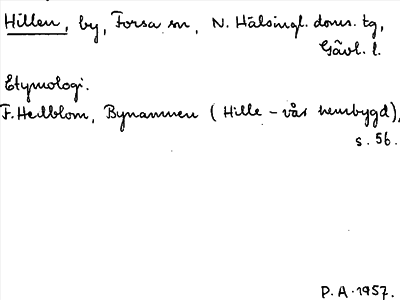 Hillen, by, Forsa sn, N. Hälsingl. doms. tg,
Gävl. l.
Etymologi.
F. Hedblom, Bynamnen (Hille - vår hembygd),
s. 56.
P. A. 1957.